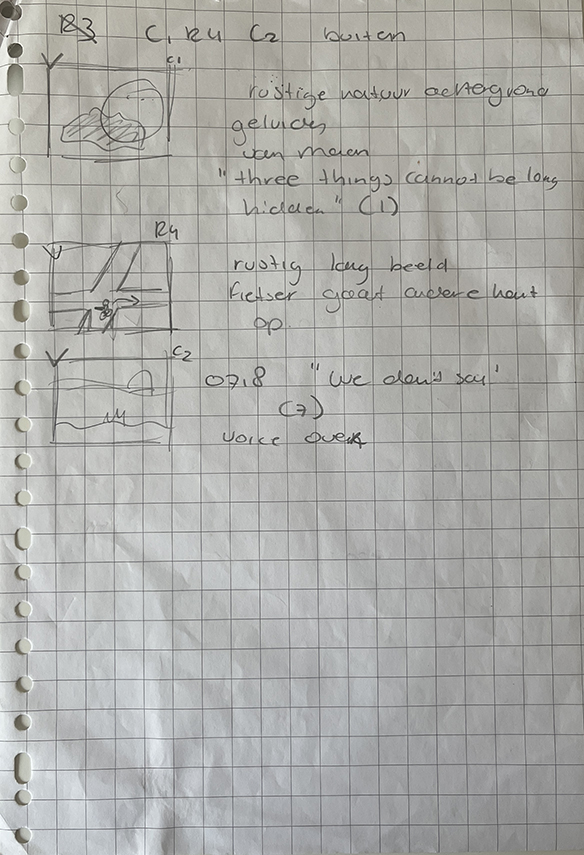 R3 C1 R4 C2 buiten
C1
rustige natuur achtergrond
geluiden
van maan
"three things cannot be long
hidden" (1)
R4
rustig lang beeld
fietser gaat andere kant
op
C2
07,8 "we don't say"
(7)
voice over